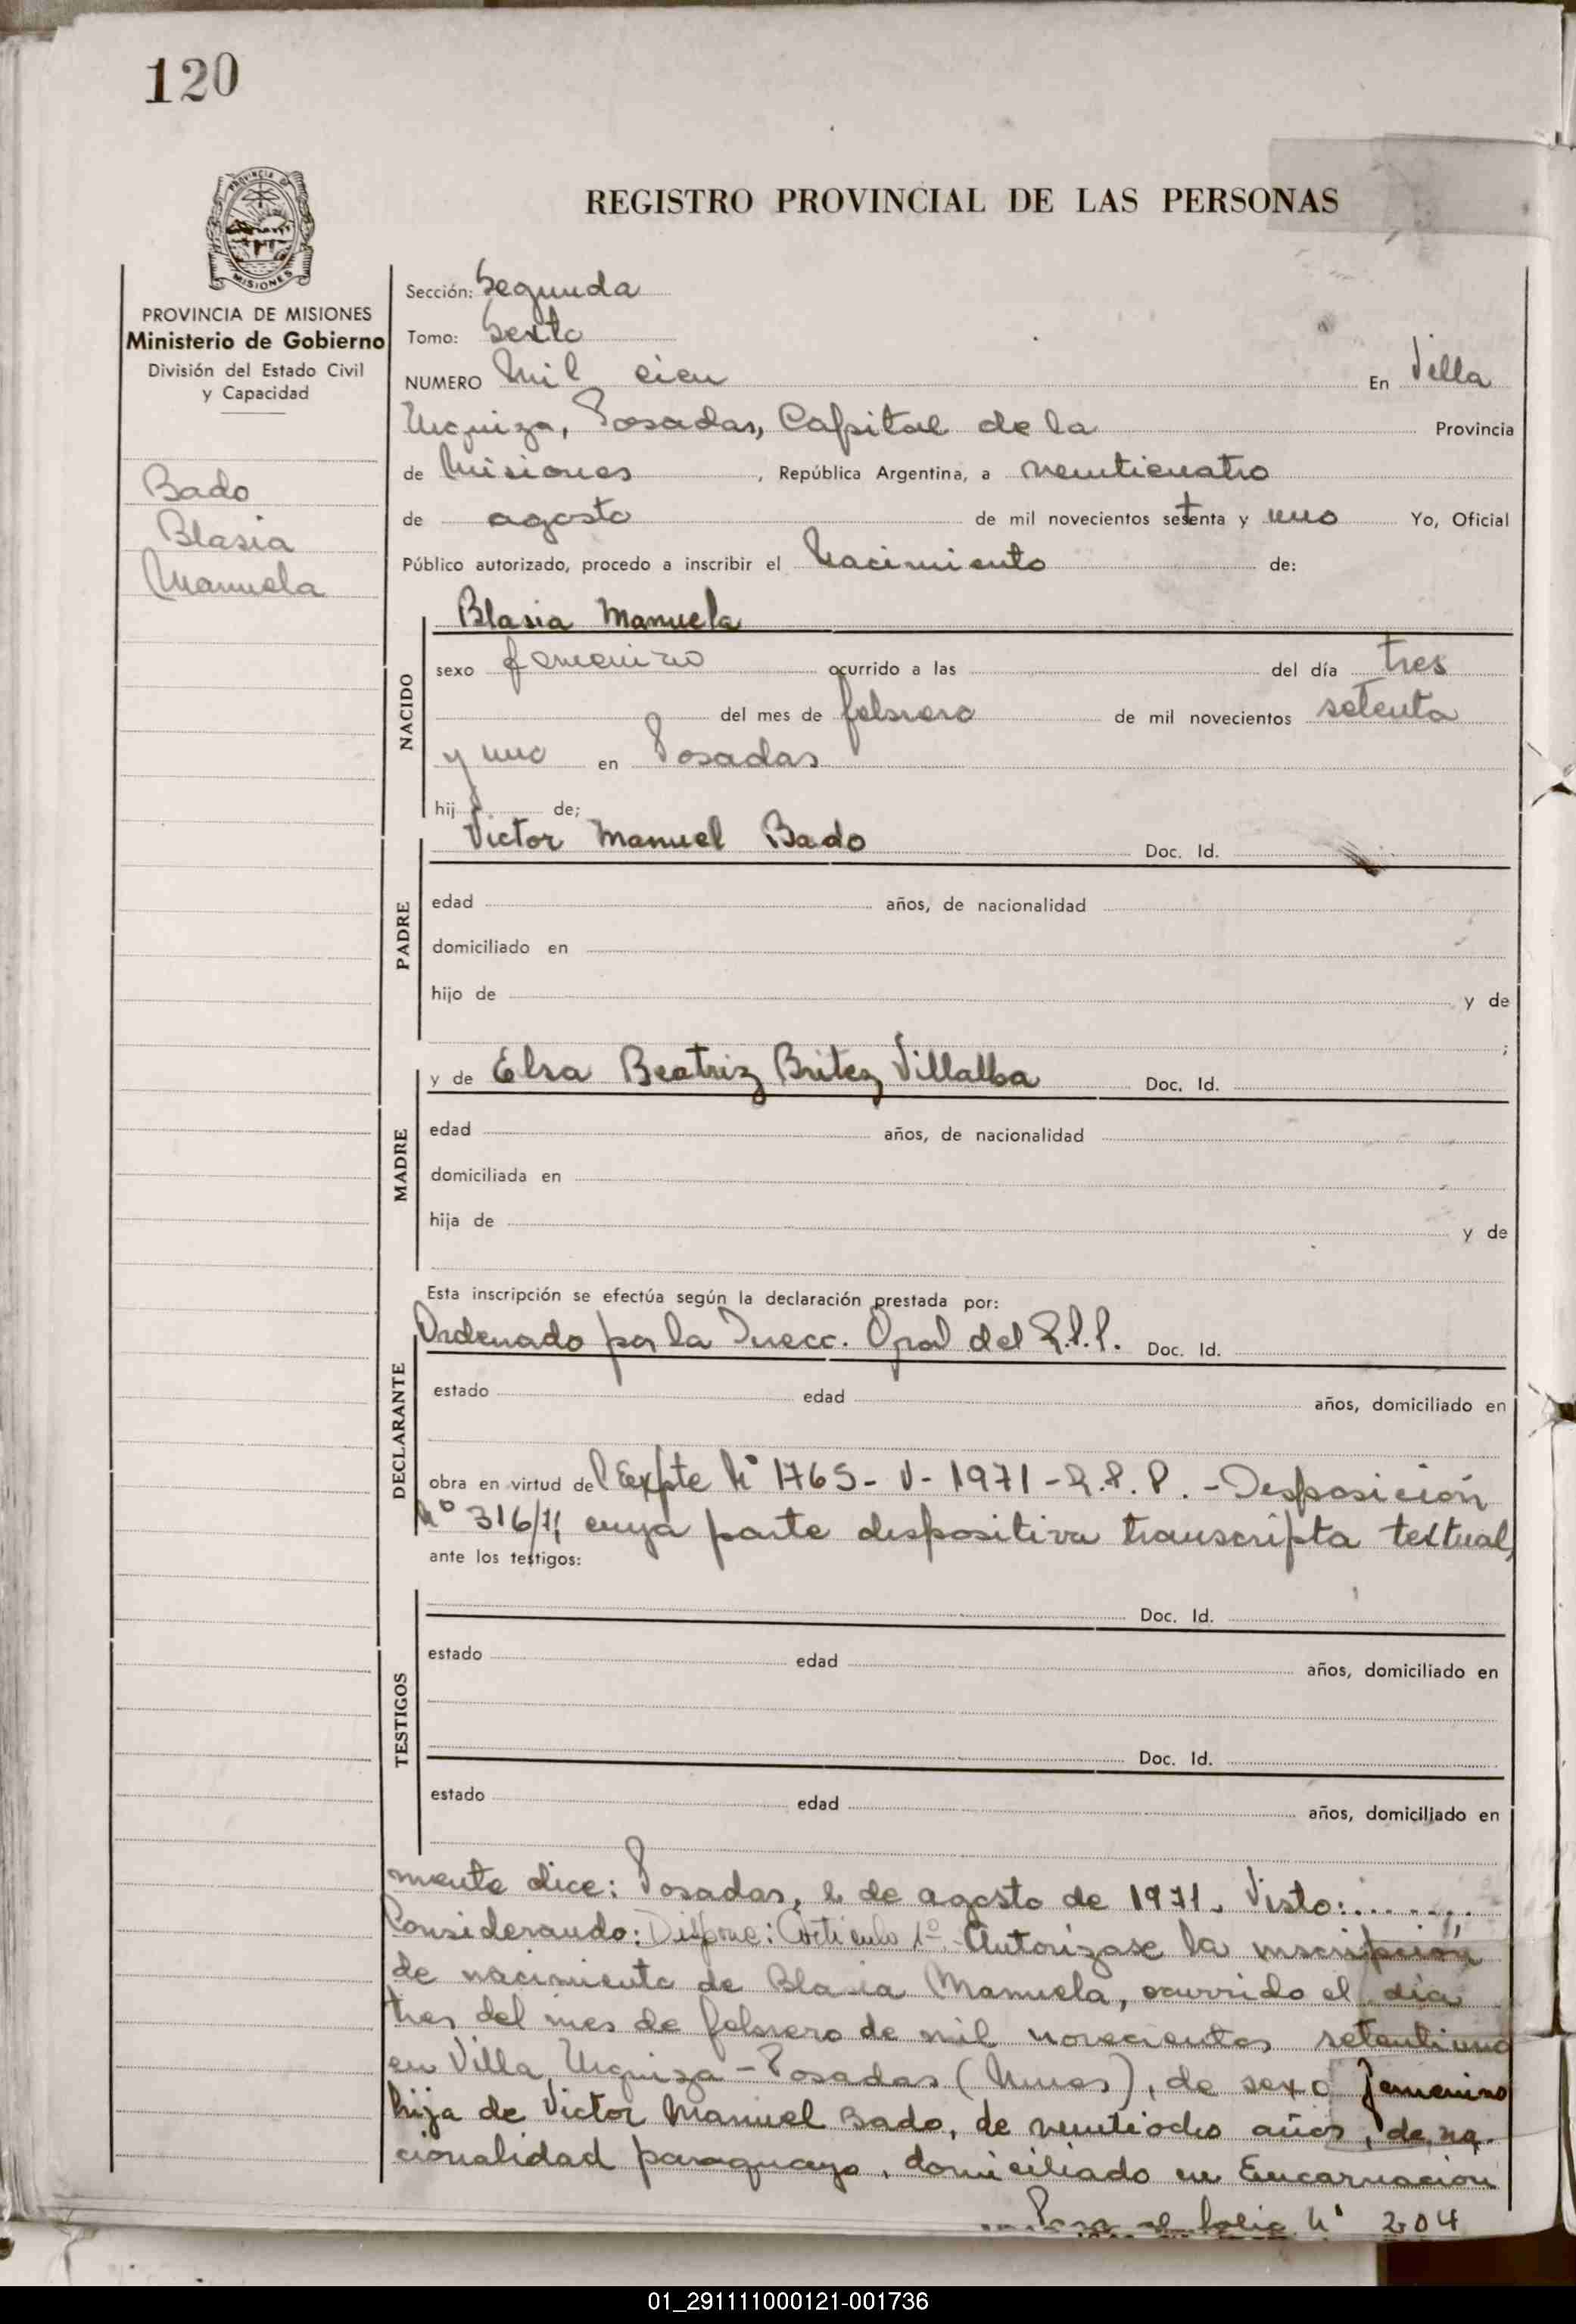 120
PROVINCIA DE
MISIONES
REGISTRO PROVINCIAL DE LAS PERSONAS
PROVINCIA DE MISIONES
Ministerio de Gobierno
División del Estado Civil
y Capacidad
Bado
Blasia
Manuela
Sección: Segunda
Tomo: Sexto
NUMERO Mil cien En Villa
Urquiza, Posadas, Capital de la Provincia
de Misiones, República Argentina, a veinticuatro
de agosto de mil novecientos setenta y uno Yo, Oficial
Público autorizado, procedo a inscribir el Nacimiento de:
NACIDO
Blasia Manuela
sexo femenino ocurrido a las del día tres
del mes de febrero de mil novecientos setenta
y uno en Posadas
hij de;
PADRE
Victor Manuel Bado Doc. Id.
edad años, de nacionalidad
domiciliado en
hijo de y de
;
MADRE
y de Elsa Beatriz Britez Villalba Doc. Id.
edad años, de nacionalidad
domiciliada en
hija de y de
Esta inscripción se efectúa según la declaración prestada por:
DECLARANTE
Ordenado por la Direcc. Gral del R.P.P. Doc. Id.
estado edad años, domiciliado en
obra en virtud del Expte Nº 1765-V-1971-R.P.P.-Disposición
Nº 316/71 cuya parte dispositiva transcripta textual
ante los testigos:
TESTIGOS
Doc. Id.
estado edad años, domiciliado en
Doc. Id.
estado edad años, domiciliado en
mente dice: Posadas, de agosto de 1971. Visto:........
Considerando: Dispone: Articulo 1º.- Autorizase la inscripción
de nacimiento de Blasia Manuela, ocurrido el día
tres del mes de febrero de mil novecientos setentiuno
en Villa Urquiza - Posadas (Mnes), de sexo femenino
hija de Victor Manuel Bado, de veintiocho años, de na-
cionalidad paraguaya, domiciliado en Encarnación
Pasa al folio Nº 204
01_291111000121-001736